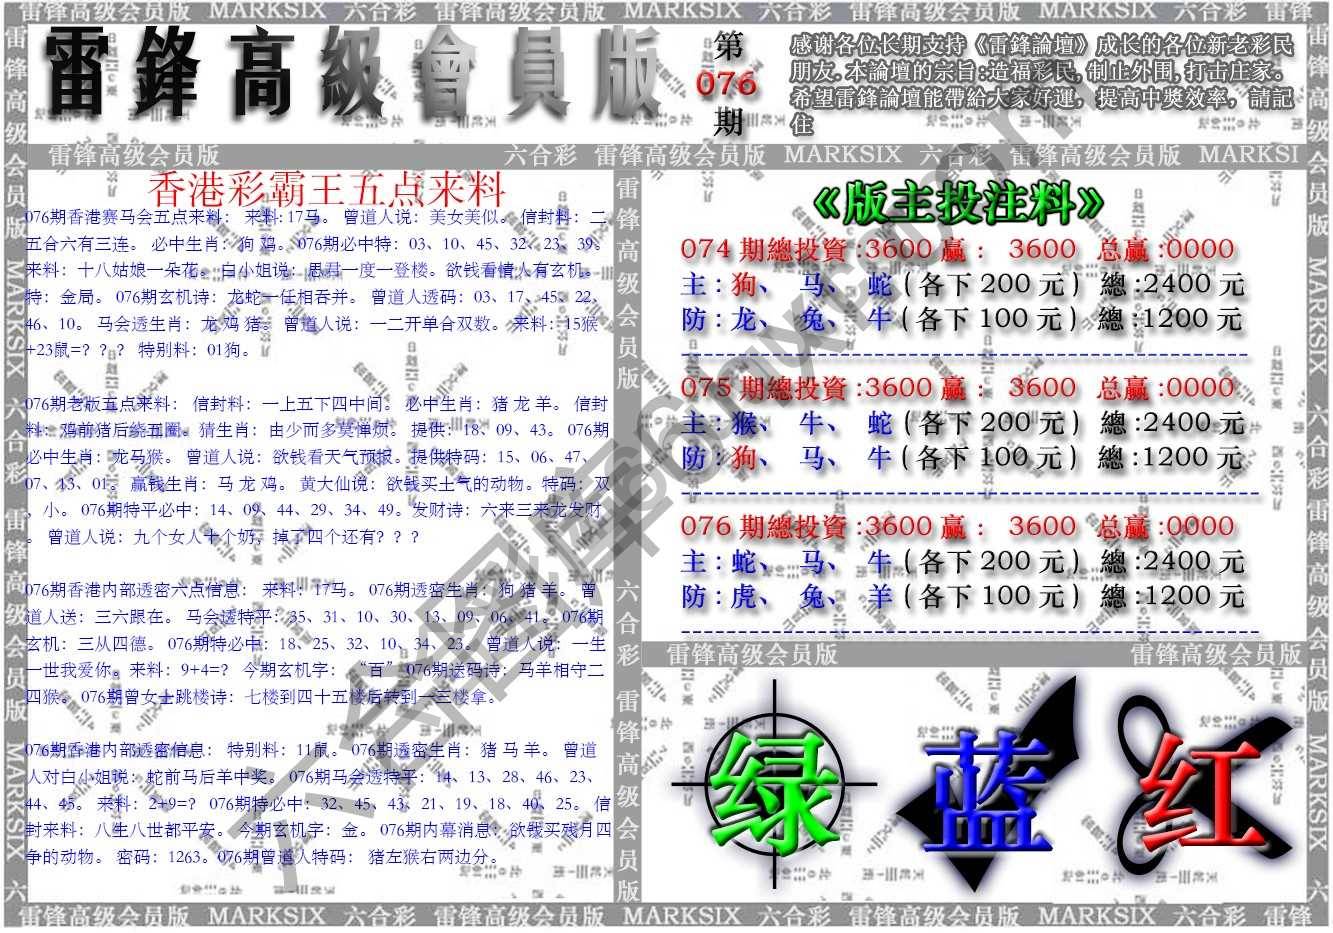 雷锋高级会员版 MARKSIX 六合彩 雷锋高级会员版 MARKSIX 六合彩 雷锋高级会员版 MARKSIX 六合彩 雷锋
雷鋒高級會員版
第
076
期
感谢各位长期支持《雷鋒論壇》成长的各位新老彩民
朋友.本論壇的宗旨:造福彩民,制止外围,打击庄家。
希望雷鋒論壇能帶給大家好運，提高中獎效率，請記
住
雷锋高级会员版 六合彩 雷锋高级会员版 MARKSIX 六合彩 雷锋高级会员版 MARKSI
香港彩霸王五点来料
076期香港赛马会五点来料： 来料:17马。 曾道人说：美女美似。 信封料：二
五合六有三连。 必中生肖：狗 鸡。 076期必中特：03、10、45、32、23、39。
来料：十八姑娘一朵花。 白小姐说：思君一度一登楼。欲钱看情人有玄机。
特：金局。 076期玄机诗：龙蛇一任相吞并。 曾道人透码：03、17、45、22、
46、10。 马会透生肖：龙 鸡 猪。 曾道人说：一二开单合双数。 来料：15猴
+23鼠=？？？ 特别料：01狗。
076期老版五点来料： 信封料：一上五下四中间。 必中生肖：猪 龙 羊。 信封
料：鸡前猪后绕五圈。猜生肖：由少而多莫惮烦。 提供：18、09、43。 076期
必中生肖：龙马猴。 曾道人说：欲钱看天气预报。提供特码：15、06、47、
07、13、01。 赢钱生肖：马 龙 鸡。 黄大仙说：欲钱买土气的动物。特码：双
，小。 076期特平必中：14、09、44、29、34、49。发财诗：六来三来龙发财
。 曾道人说：九个女人十个奶，掉了四个还有？？？
076期香港内部透密六点信息： 来料：17马。 076期透密生肖：狗 猪 羊。 曾
道人送：三六跟在。 马会透特平：35、31、10、30、13、09、06、41。 076期
玄机：三从四德。 076期特必中：18、25、32、10、34、23。 曾道人说：一生
一世我爱你。来料：9+4=？ 今期玄机字：“百” 076期送码诗：马羊相守二
四猴。 076期曾女士跳楼诗：七楼到四十五楼后转到一三楼拿。
076期香港内部透密信息： 特别料：11鼠。 076期透密生肖：猪 马 羊。 曾道
人对白小姐说：蛇前马后羊中奖。 076期马会透特平：14、13、28、46、23、
44、45。 来料：2+9=？ 076期特必中：32、45、43、21、19、18、40、25。 信
封来料：八生八世都平安。 今期玄机字：金。 076期内幕消息：欲钱买残月四
争的动物。 密码：1263。076期曾道人特码： 猪左猴右两边分。
《版主投注料》
074期總投資:3600 赢： 3600 总赢:0000
主:狗、 马、 蛇(各下200元) 總:2400元
防:龙、 兔、 牛(各下100元) 總:1200元
075期總投資:3600 赢： 3600 总赢:0000
主:猴、 牛、 蛇(各下200元) 總:2400元
防:狗、 马、 牛(各下100元) 總:1200元
076期總投資:3600 赢： 3600 总赢:0000
主:蛇、 马、 牛(各下200元) 總:2400元
防:虎、 兔、 羊(各下100元) 總:1200元
雷锋高级会员版 雷锋高级会员版
绿 蓝 红
雷锋高级会员版 MARKSIX 六合彩 雷锋高级会员版 MARKSIX 六合彩 雷锋高级会员版 MARKSIX 六合彩 雷锋